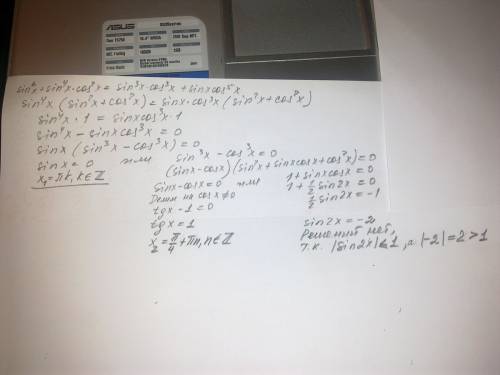 ASUS
sin⁶x + sin⁴x·cos²x = sin³x·cos³x + sinx cos⁵x
sin⁴x (sin²x + cos²x) = sinx·cos³x (sin²x + cos²x)
sin⁴x · 1 = sinx cos³x · 1
sin⁴x − sinx cos³x = 0
sinx (sin³x − cos³x) = 0
sinx = 0 или sin³x − cos³x = 0
x₁ = πk, k∈ℤ
(sinx − cosx)(sin²x + sinx cosx + cos²x) = 0
sinx − cosx = 0 или 1 + sinx cosx = 0
Делим на cosx ≠ 0
1 + ½ sin2x = 0
tgx − 1 = 0
½ sin2x = −1
tgx = 1
sin2x = −2
x₂ = π/4 + πn, n∈ℤ
Решений нет,
т.к. |sin2x| ≤ 1, а |−2| = 2 > 1